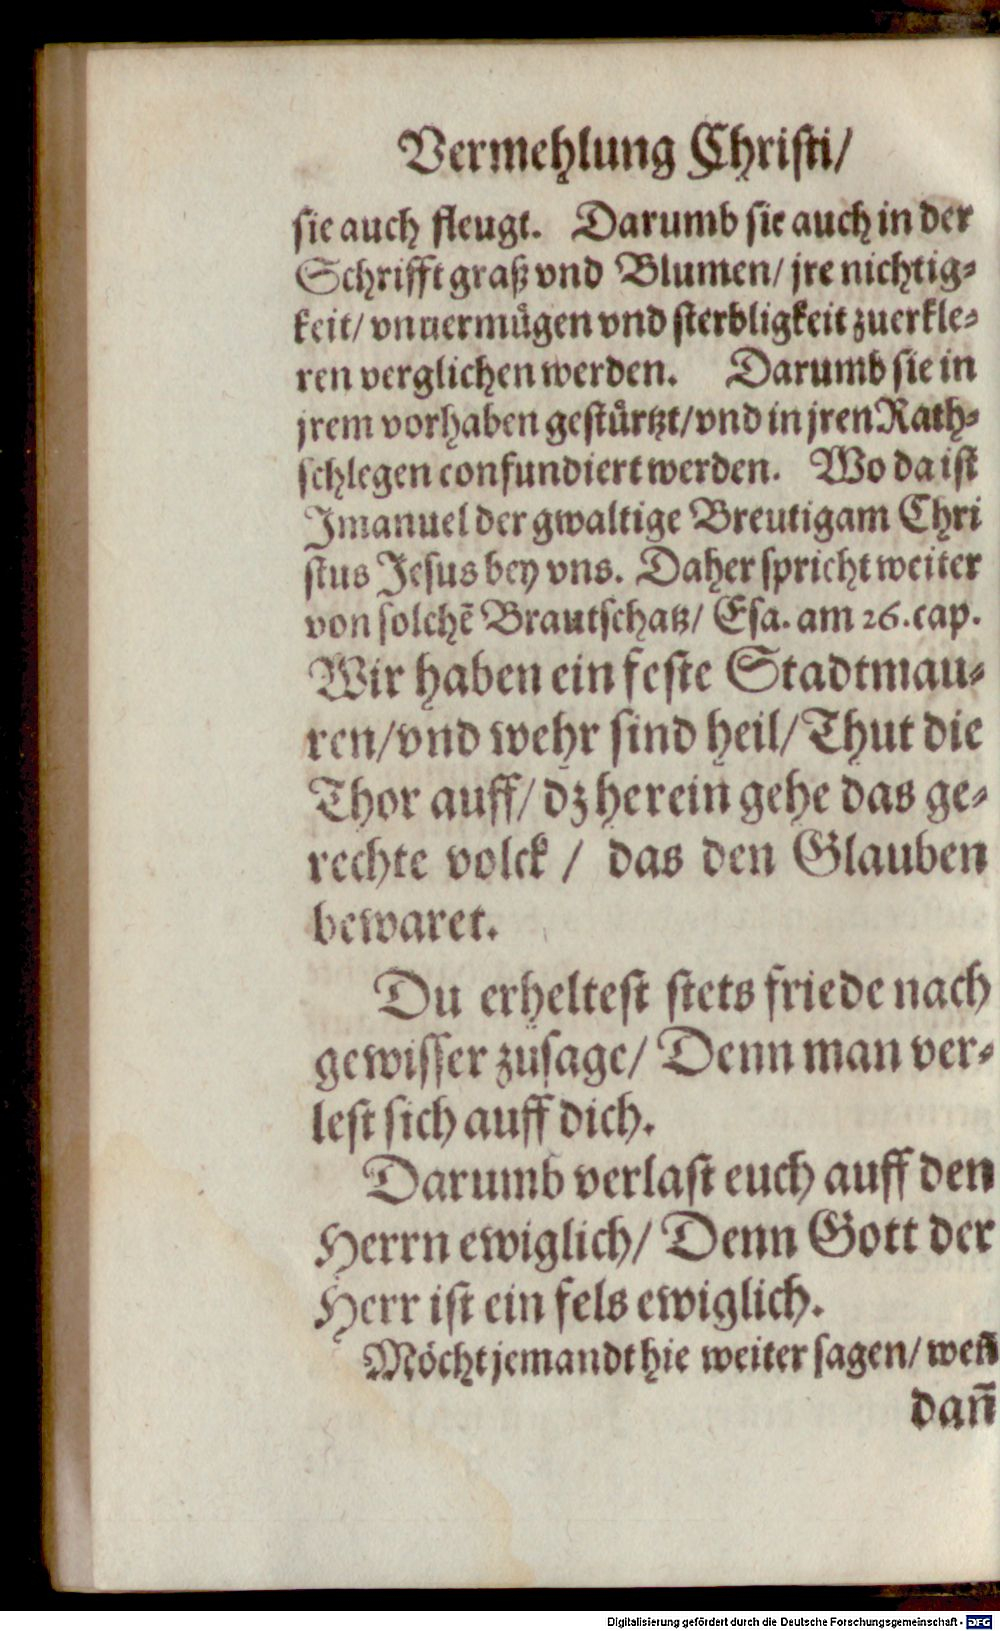 Vermehlung Christi/
sie auch fleugt. Darumb sie auch in der
Schrifft graß vnd Blumen/ jre nichtig-
keit/ vnuermůgen vnd sterbligkeit zuerkle-
ren verglichen werden. Darumb sie in
jrem vorhaben gestůrtzt/ vnd in jren Rath-
schlegen confundiert werden. Wo da ist
Imanuel der gwaltige Breutigam Chri
stus Jesus bey vns. Daher spricht weiter
von solchē Brautschatz/ Esa. am 26. cap.
Wir haben ein feste Stadtmau-
ren/ vnd wehr sind heil/ Thut die
Thor auff/ dz herein gehe das ge-
rechte volck / das den Glauben
bewaret.
Du erheltest stets friede nach
gewisser zusage/ Denn man ver-
lest sich auff dich.
Darumb verlast euch auff den
Herrn ewiglich/ Denn Gott der
Herr ist ein fels ewiglich.
Möcht jemandt hie weiter sagen/ weñ
dañ
Digitalisierung gefördert durch die Deutsche Forschungsgemeinschaft - DFG